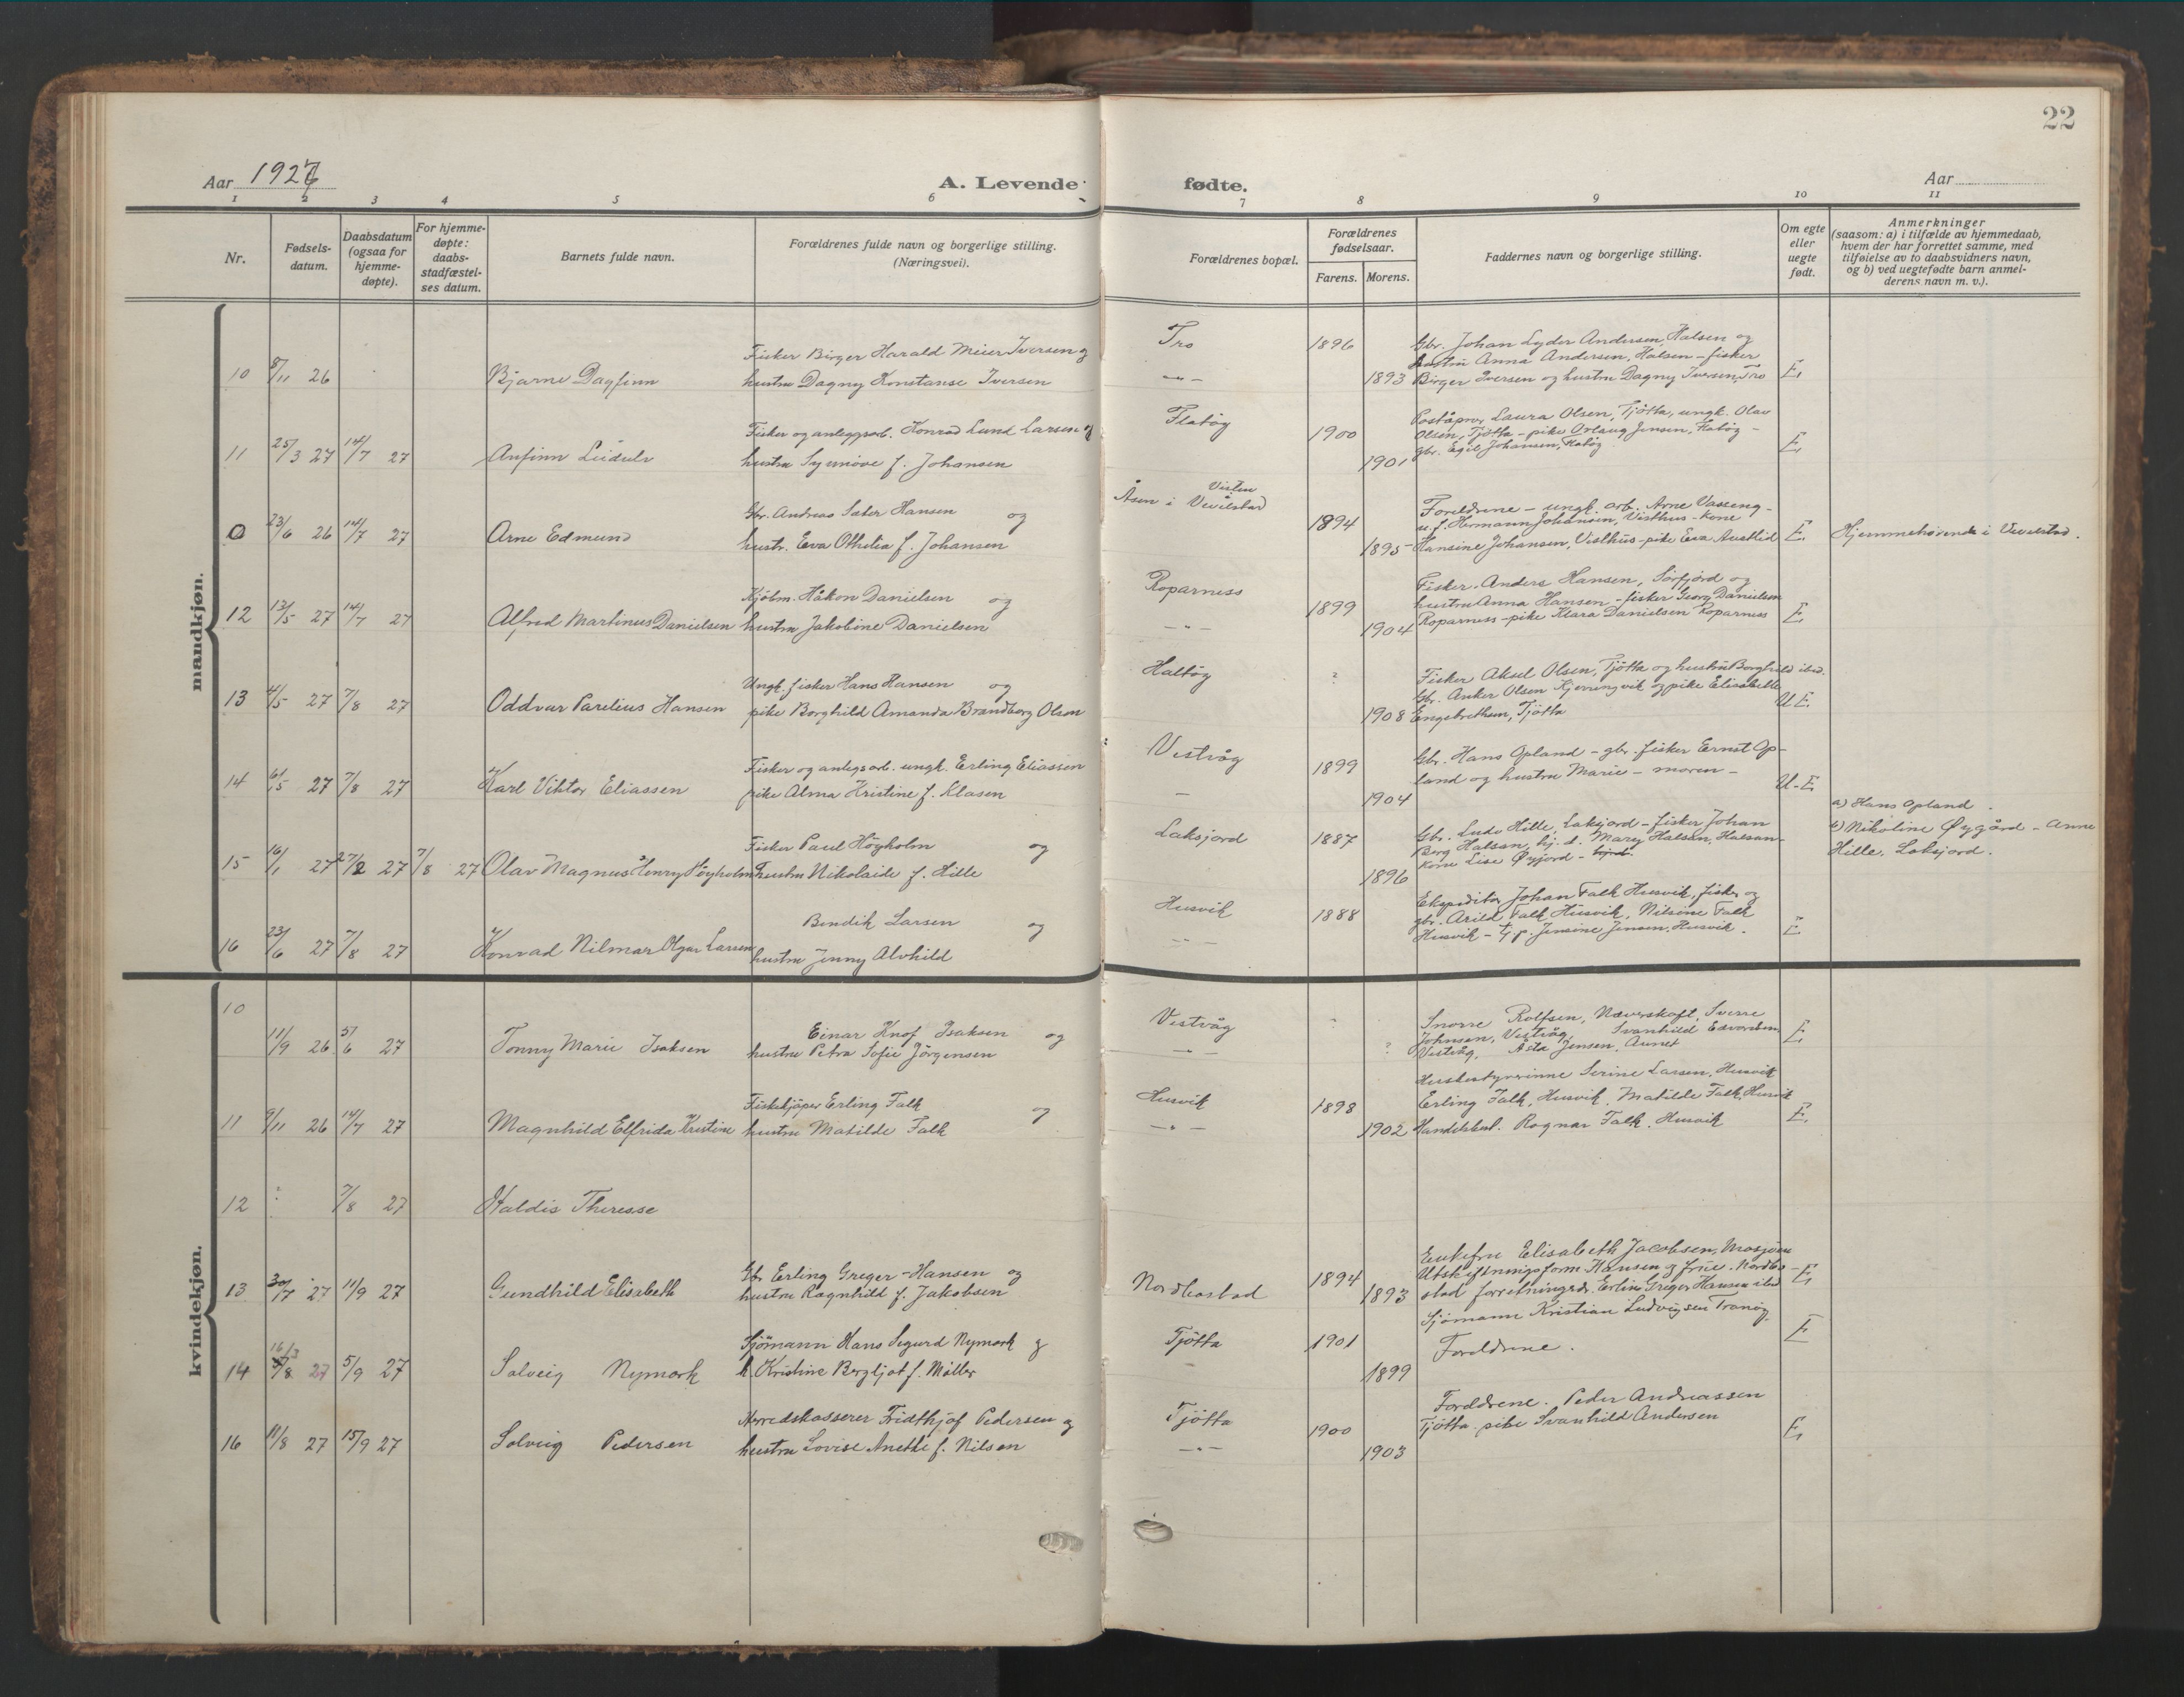 22
Aar 1927
A. Levende fødte.
Aar
1 2 3 4 5 6 7 8 9 10 11
Nr.
Fødsels-
datum.
Daabsdatum
(ogsaa for
hjemme-
døpte).
For hjemme-
døpte:
daabs-
stadfæstel-
ses datum.
Barnets fulde navn.
Forældrenes fulde navn og borgerlige stilling.
(Næringsvei).
Forældrenes bopæl.
Forældrenes
fødselsaar.
Farens. Morens.
Faddernes navn og borgerlige stilling.
Om egte
eller
uegte
født.
Anmerkninger
(saasom: a) i tilfælde av hjemmedaab,
hvem der har forrettet samme, med
tilføielse av to daabsvidners navn,
og b) ved uegtefødte barn anmel-
derens navn m. v.).
mandkjøn.
10 8/11 26 Bjarne Dagfinn
Fisker Birger Harald Meier Iversen og
hustru Dagny Konstanse Iversen
Tro 1896
1893
Gbr. Johan Lyder Andersen, Halsen og
hustru Anna Andersen, Halsen - fisker
Birger Iversen og hustru Dagny Iversen, Tro E.
11 25/3 27 14/7 27 Anfinn Leidulv
Fisker og anleggsarb. Konrad Lund Larsen og
hustru Synnöve f. Johansen
Flatöy 1900
1901
Poståpner Laura Olsen, Tjötta, ungk. Olav
Olsen, Tjötta - pike Aslaug Jensen, Flatöy -
gbr. Egil Johansen, Flatöy E.
0 23/6 26 14/7 27 Arne Edmund
Gbr. Andreas Sæter Hansen og
hustr. Eva Othelia f. Johansen
Visten
Åsen i Vevelstad
1894
1895
Foreldrene - ungk. arb. Arne Vasseng -
u.f. Hermann Johansen, Visthus - Kone
Hansine Johansen, Visthus - pike Eva Austlid E.
Hjemmehørende i Vevelstad.
12 13/5 27 14/7 27 Alfred Martinus Danielsen
Kjöbm. Håkon Danielsen og
hustru Jakobine Danielsen
Roparness 1899
1904
Fisker Anders Hansen, Sörfjord og
hustru Anna Hansen - fisker Georg Danielsen
Roparness - pike Klara Danielsen Roparness E
13 4/5 27 7/8 27 Oddvar Parelius Hansen
Ungk. fisker Hans Hansen og
pike Borghild Amanda Brandborg Olsen
Haltöy ?
1908
Fisker Aksel Olsen, Tjötta og hustru Borghild ibid.
Gbr. Anker Olsen Kjerringvik og pike Elisabeth
Engebrethsen, Tjötta U E.
14 6/5 27 7/8 27 Karl Viktor Eliassen
Fisker og anlegsarb. ungk. Erling Eliassen
pike Alma Kristine f. Klasen
Vestvåg 1899
1904
Gbr. Hans Opland - gbr. fisker Ernst Op-
land og hustru Marie - moren - U-E
15 16/1 27 27/2 27 7/8 27 Olav Magnus Henry Höyholm
Fisker Paul Höyholm og
hustru Nikolaide f. Hille
Laksjord 1887
1896
Gbr. Ludv Hille, Laksjord - fisker Johan
Berg Halsan, hj. d. Mary Halsan, Halsan -
Kone Lise Øyjord -
a) Hans Opland.
b) Nikoline Øygård - Anne
Hille, Laksjord.
16 23/6 27 7/8 27 Konrad Nilmar Olgar Larsen
Bendik Larsen og
hustru Jenny Alvhild
Husvik 1888
Ekspeditör Johan Falk Husvik, fisker og
gbr. Arild Falk Husvik, Nilsine Falk
Husvik - tj.p. Jensine Jensen, Husvik. E
kvindekjøn.
10 11/9 26 5/6 27 Tonny Marie Isaksen
Einar Knof Isaksen og
hustru Petra Sofie Jörgensen
Vestvåg
?
Snorre Rolfsen, Næverskaft, Sverre
Johnsen, Vestvåg, Svanhild Edvardsen
Vestvåg, Asta Jensen, Aunet E
11 9/11 26 14/7 27 Magnhild Elfrida Kristine
Fiskekjöper Erling Falk og
hustru Matilde Falk
Husvik 1898
1902
Husbestyrerinne Serine Larsen, Husvik
Erling Falk, Husvik, Matilde Falk, Husvik
Handelsbest. Ragnar Falk, Husvik E.
12 ? 7/8 27 Haldis Theresse
13 30/7 27 11/9 27 Gundhild Elisabeth
Gbr Erling Greger-Hansen og
hustru Ragnhild f. Jakobsen
Nordbostad 1894
1893
Enkefru Elisabeth Jacobsen, Mosjöen
Utskiftningsform. Hansen og frue. Nordbo-
stad forretningsdr. Erling Greger Hansen ibid E
Sjömann Kristian Ludvigsen Tranöy.
14 16/3 27 5/9 27 Solveig Nymark
Sjömann Hans Sigurd Nymark og
h. Kristine Bergljot f. Möller
Tjötta 1901
1899
Foreldrene. E
16 11/8 27 15/9 27 Solveig Pedersen
Herredskasserer Fridthjof Pedersen og
hustru Lovise Anette f. Nilsen
Tjötta 1900
1903
Foreldrene. Peder Andreassen
Tjötta. pike Svanhild Andersen E.